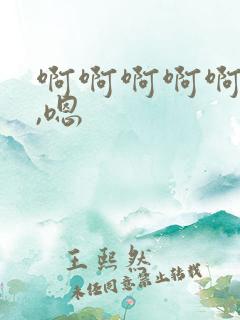 啊啊啊啊啊
,嗯
王熙然
未经同意禁止转载